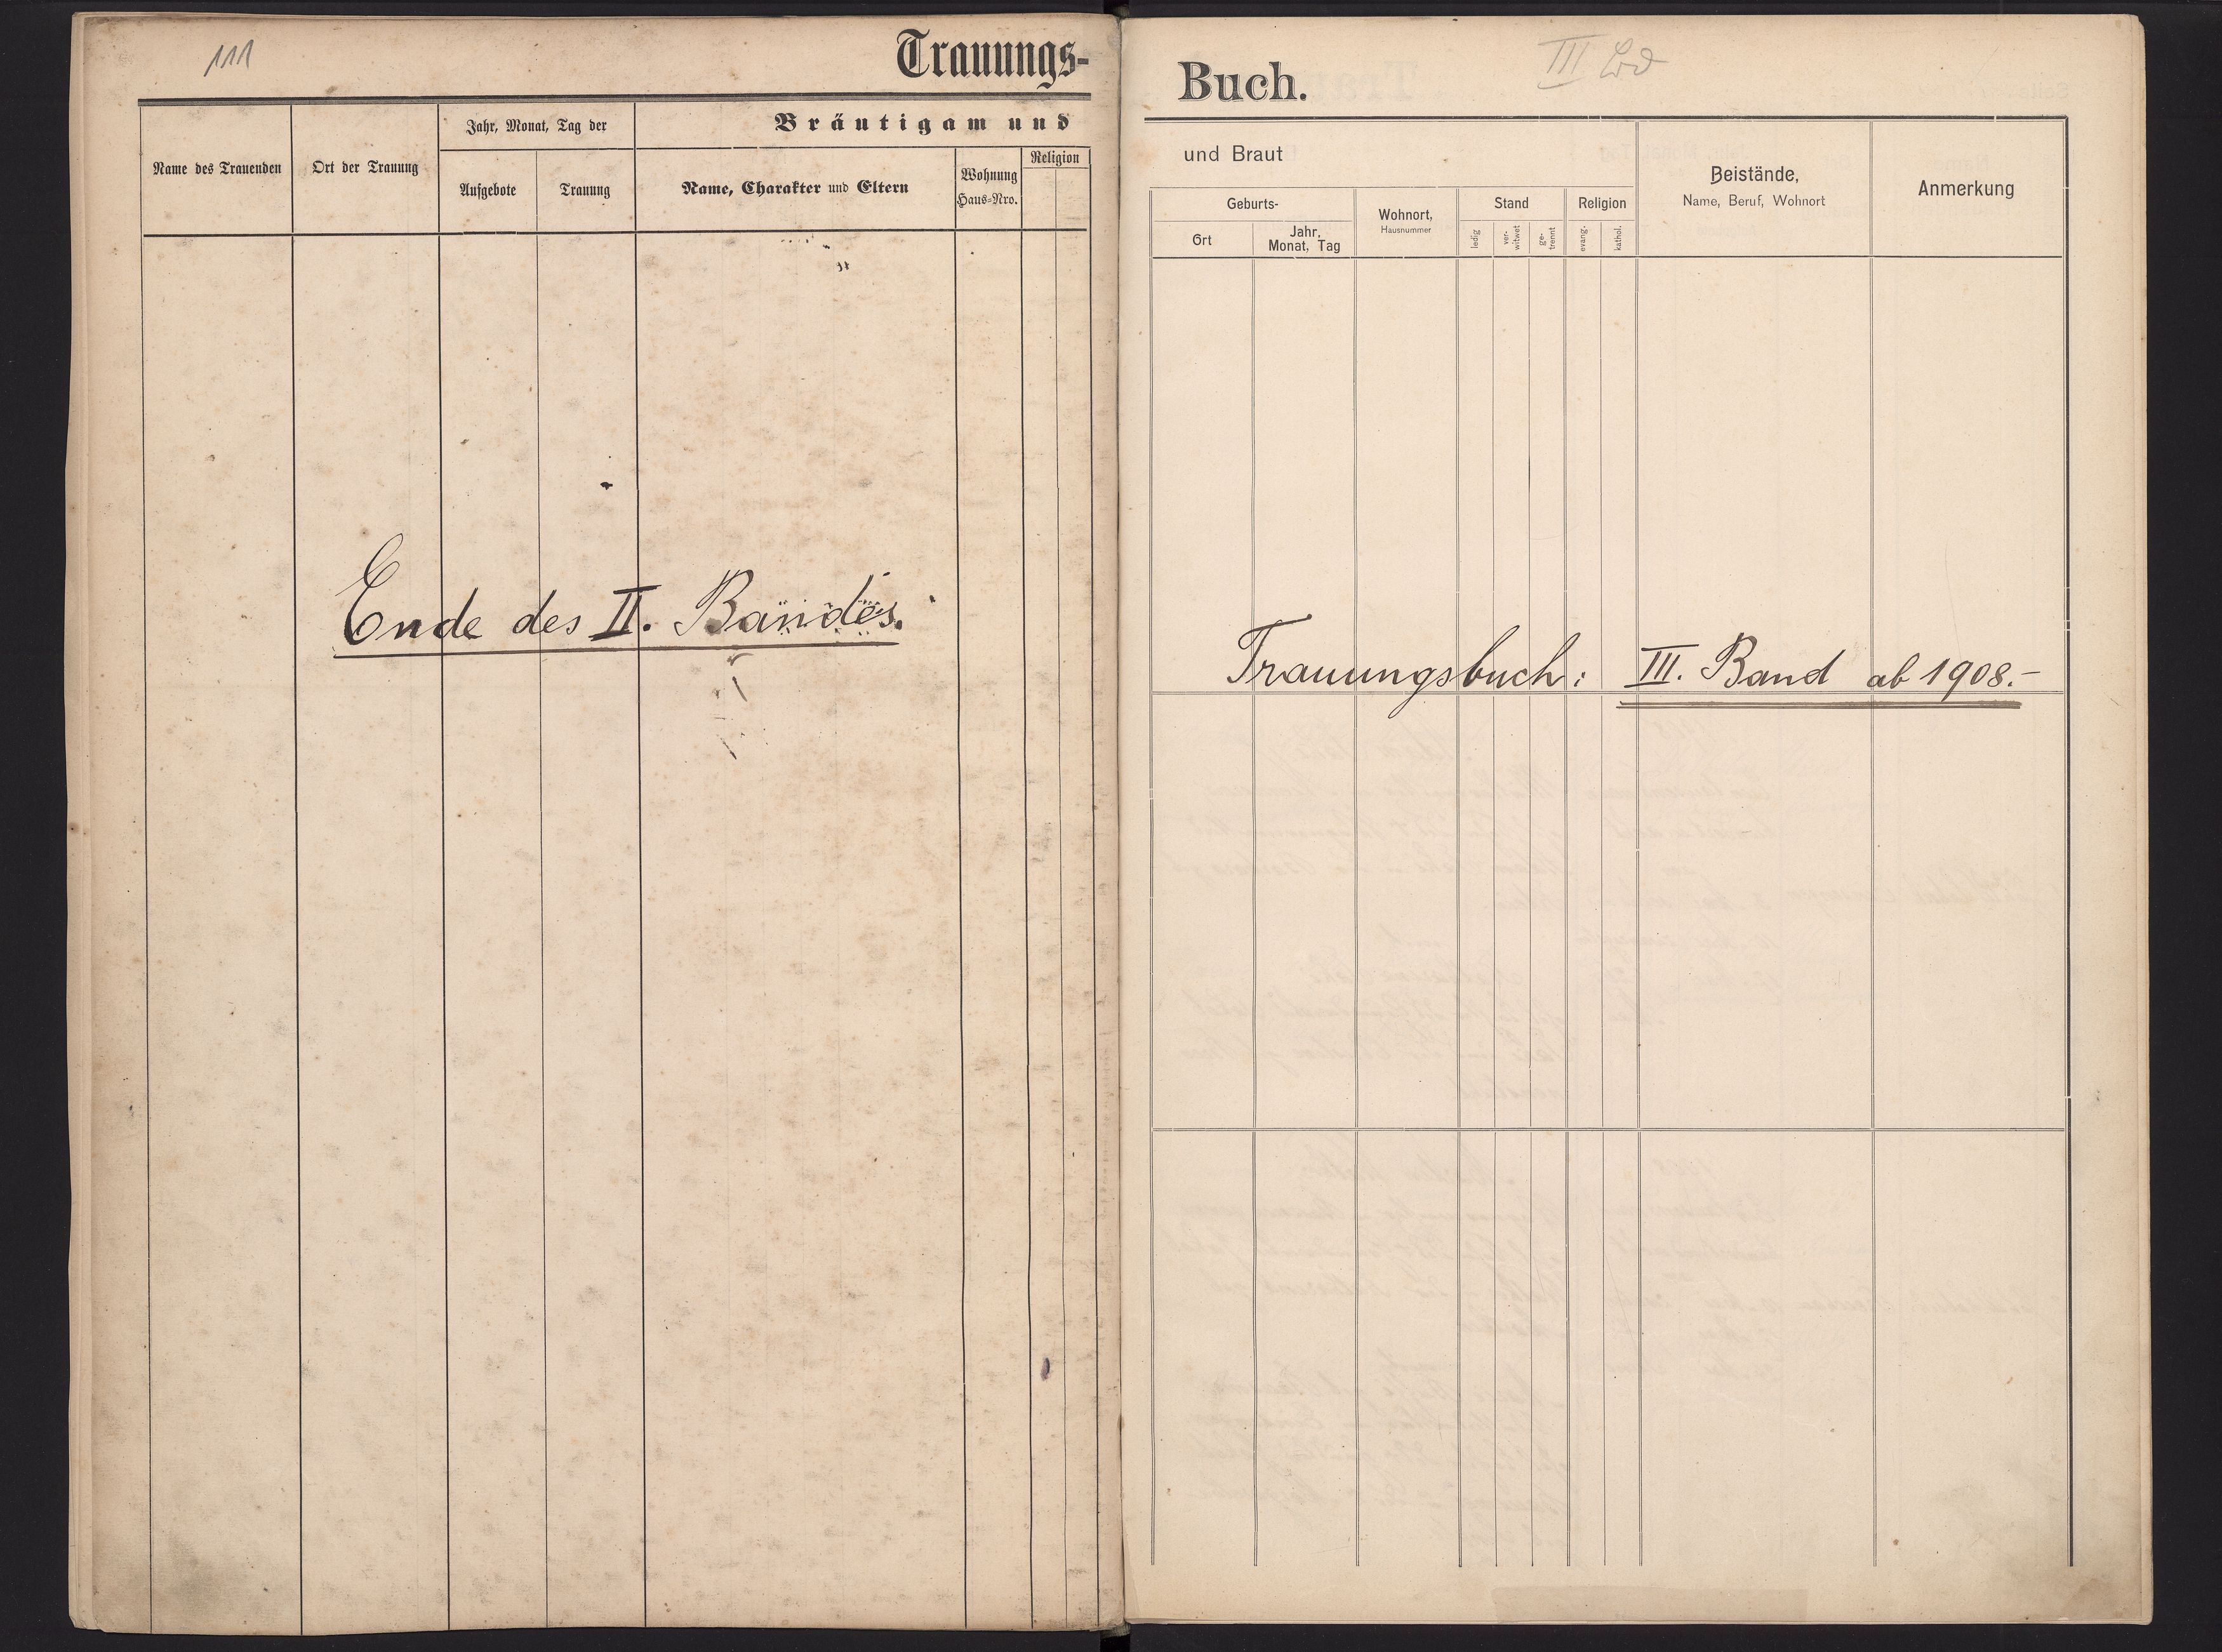 111
Trauungs-
Jahr, Monat, Tag der
Bräutigam und
Name des Trauenden
Ort der Trauung
Aufgebote
Trauung
Name, Charakter und Eltern
Wohnung
Haus-Nro.
Religion
Ende des II. Bandes.
III Bd
Buch.
und Braut
Geburts-
Ort
Jahr,
Monat, Tag
Wohnort,
Hausnummer
Stand
ledig
ver-
witwet
ge-
trennt
Religion
evang.
kathol.
Beistände,
Name, Beruf, Wohnort
Anmerkung
Trauungsbuch: III. Band ab 1908.-